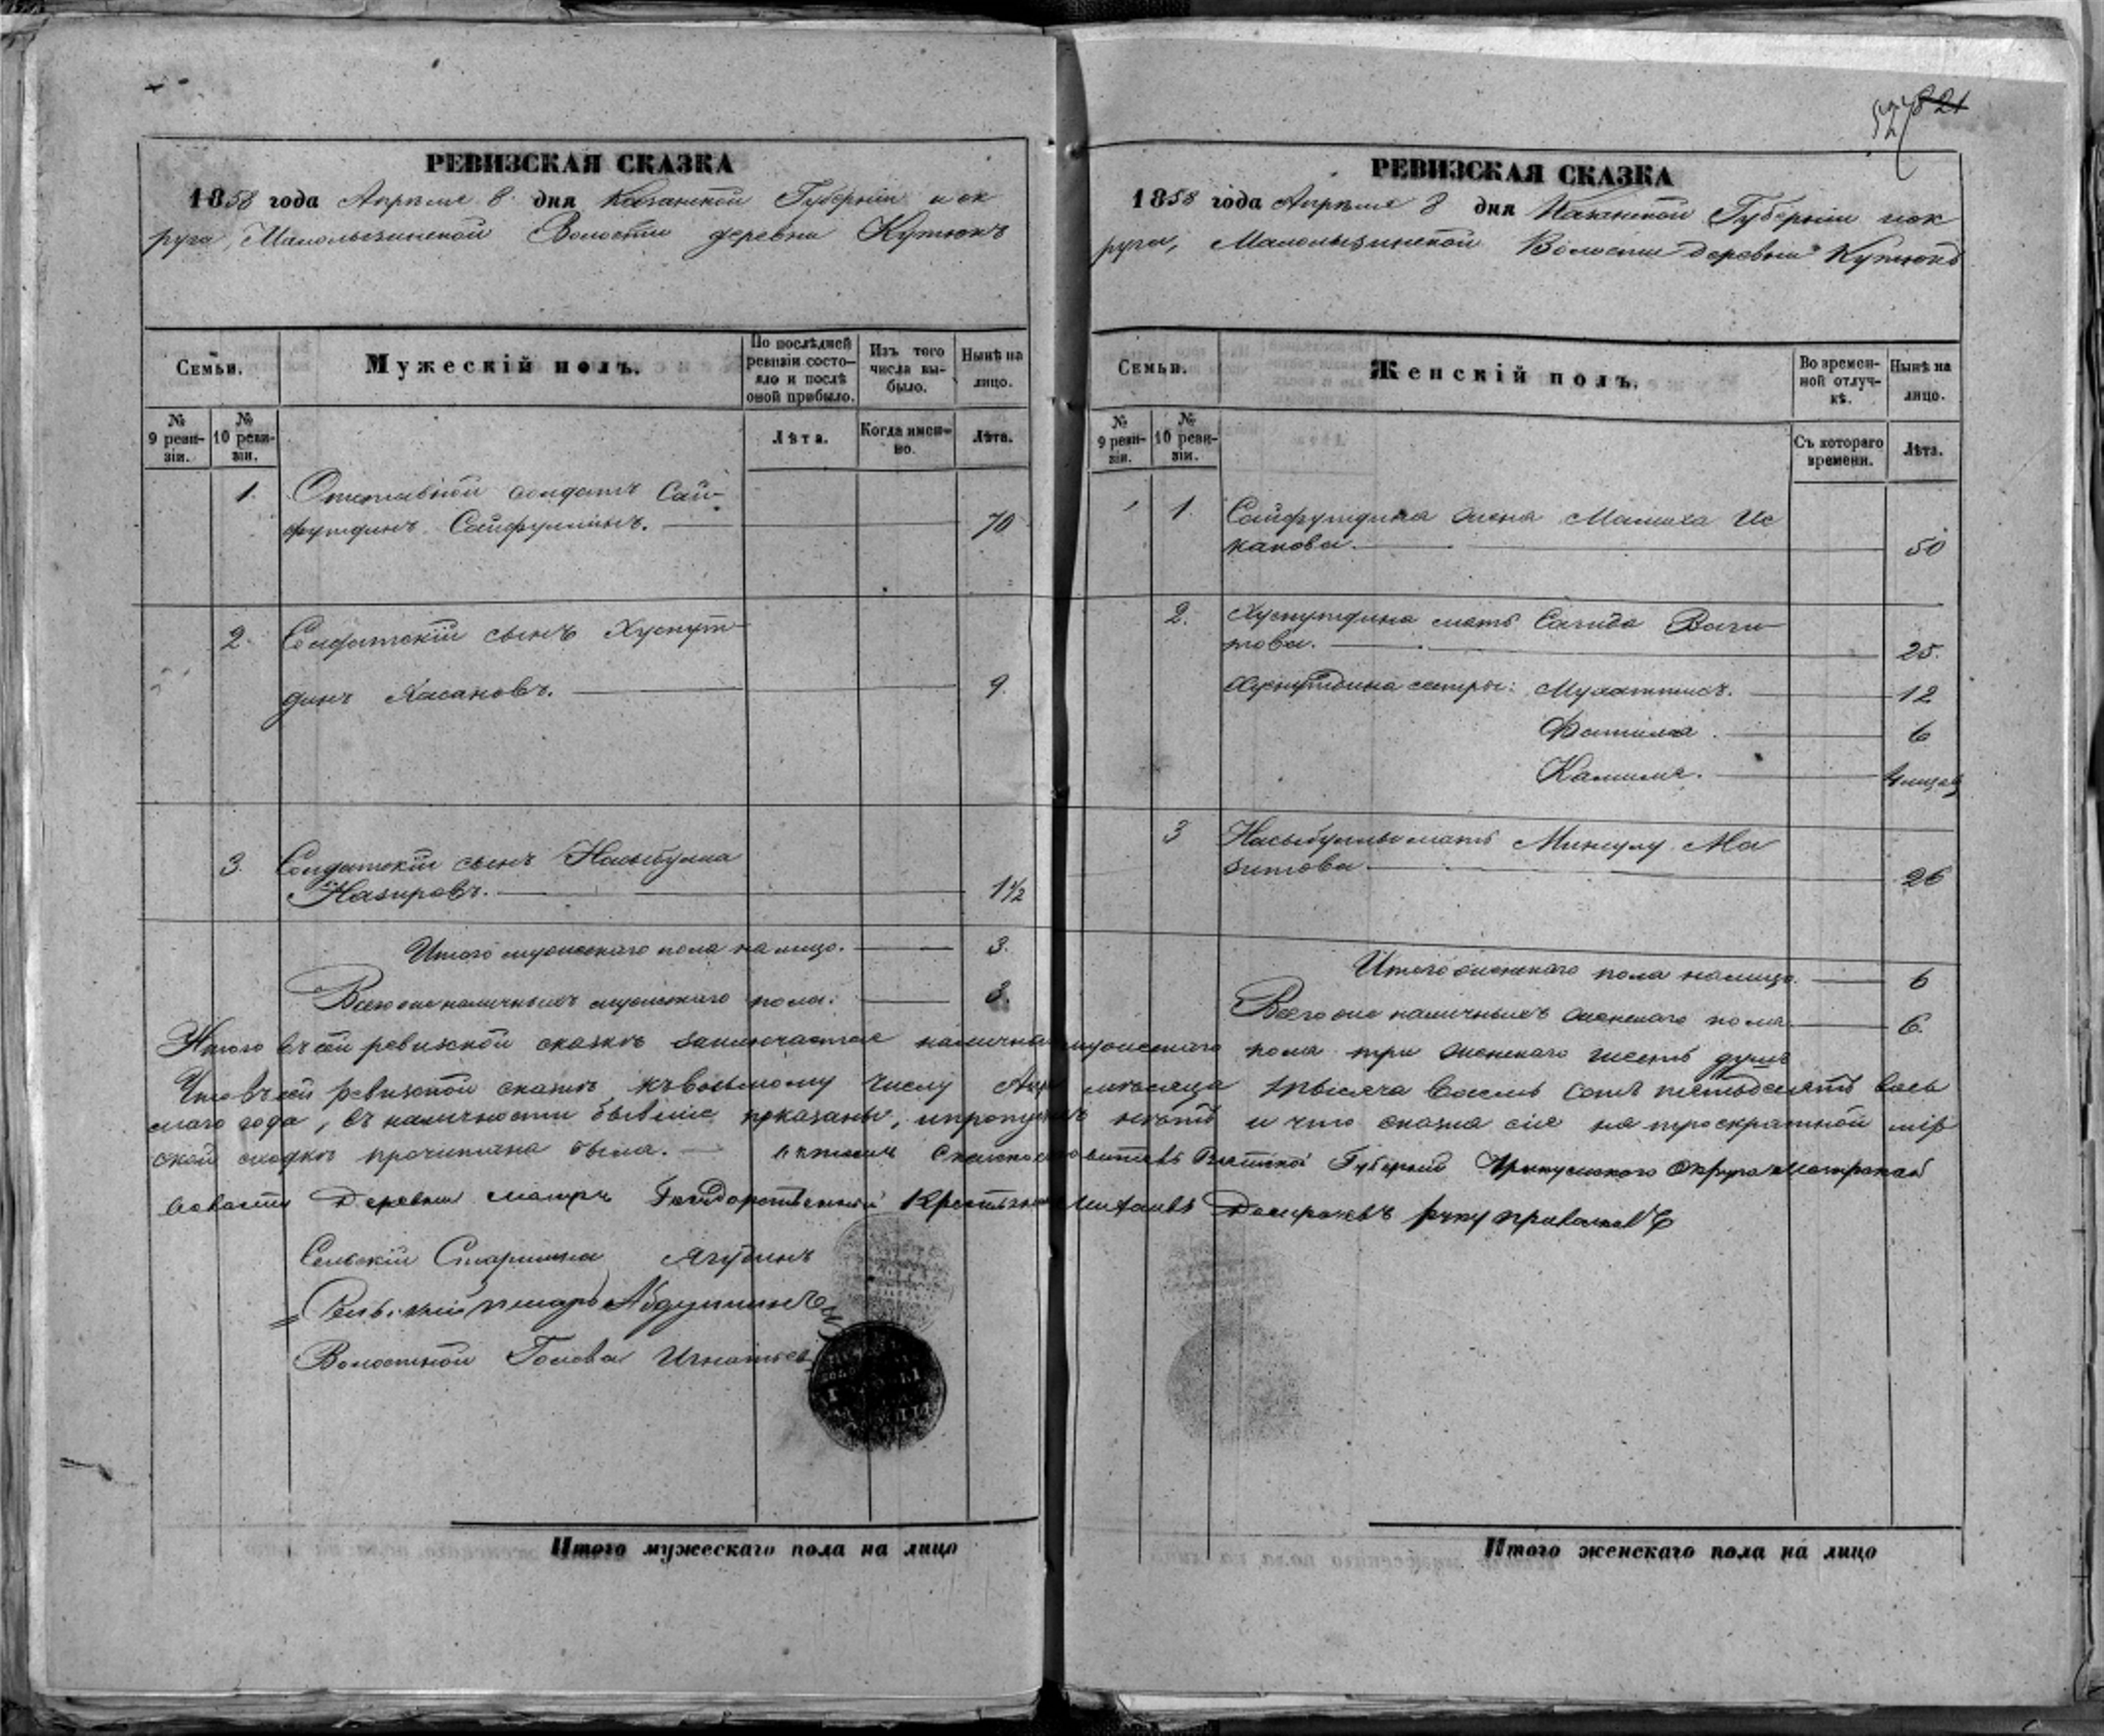 РЕВИЗСКАЯ СКАЗКА
1858 года Апреля 8 дня Казанской Губерніи и ок
руга, Малолызинской Волости деревни Кутюкъ
Семьи.
Мужескій полъ.
По послѣдней ревизіи состояло и послѣ оной прибыло.
Изъ того числа выбыло.
Нынѣ на лицо.
№ 9 ревизіи.
№ 10 ревизіи.
Лѣта.
Когда именно.
Лѣта.
1. Отставной солдатъ Сай-
футдинъ Сайфуллинъ. 70
2. Солдатскій сынъ Хуснут-
динъ Хасановъ. 9.
3. Солдатскій сынъ Насыбулла
Назировъ. 1½
Итого мужескаго пола на лицо. 3.
Всего же наличныхъ мужскаго пола: 3.
527 821
РЕВИЗСКАЯ СКАЗКА
1858 года Апреля 8 дня Казанской Губерніи и ок
руга, Малолызинской Волости деревни Кутюкъ
Семьи.
Женскій полъ.
Во временной отлучкѣ.
Нынѣ на лицо.
№ 9 ревизіи.
№ 10 ревизіи.
Съ котораго времени.
Лѣта.
1. Сайфутдина жена Малиха Ис
канова. 50
2. Хуснутдина мать Сагида Ваги-
това. 25.
Хуснутдина сестры: 12
Фатима. 6
Камиля. 4 мѣсяц
3 Насыбуллы мать Мингулу Ма
зитова 26
Итого женскаго пола налицо. 6
Всего же наличныхъ женскаго пола 6.
Итого въ сей ревизской сказкѣ заключается налично мужескаго пола три женскаго шесть душъ
Что въ сей ревизской сказкѣ къ восьмому числу Апр мѣсяца тысяча восемь сотъ пятьдесятъ вось
маго года, въ наличности бывшіе показаны, и пропуск нѣтъ и что сказка сія на троекратной мір
ской сходкѣ прочитана была. Вятской Губерніи округа
волости Деревни Государственный руку приложилъ
Сельскій Старшина Ягудинъ
писарь Абдуллинъ
Волостной Голова Игнатьев
Итого мужескаго пола на лицо
Итого женскаго пола на лицо